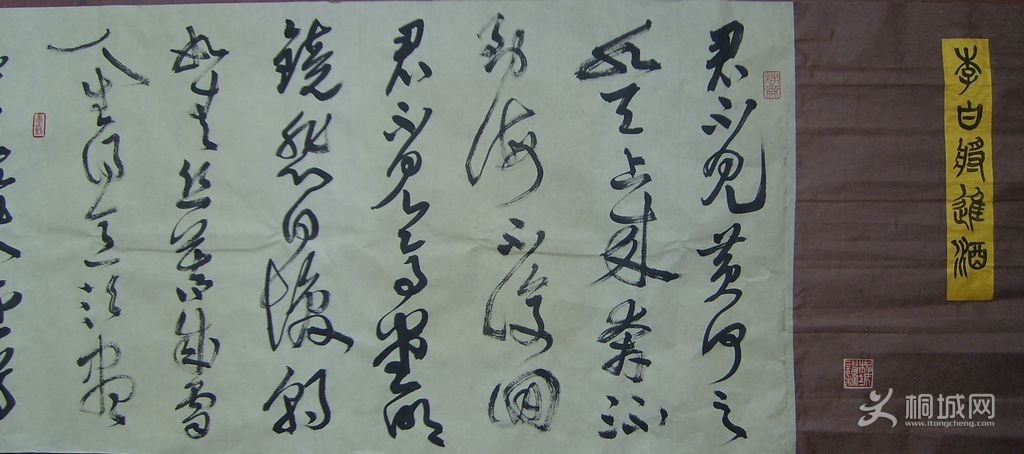 李白將進酒
君不見黃河之
水天上來奔流
到海不復回
君不見高堂明
鏡悲白髮朝
如青絲暮成雪
人生得意須盡
桐城网
www.itongcheng.com